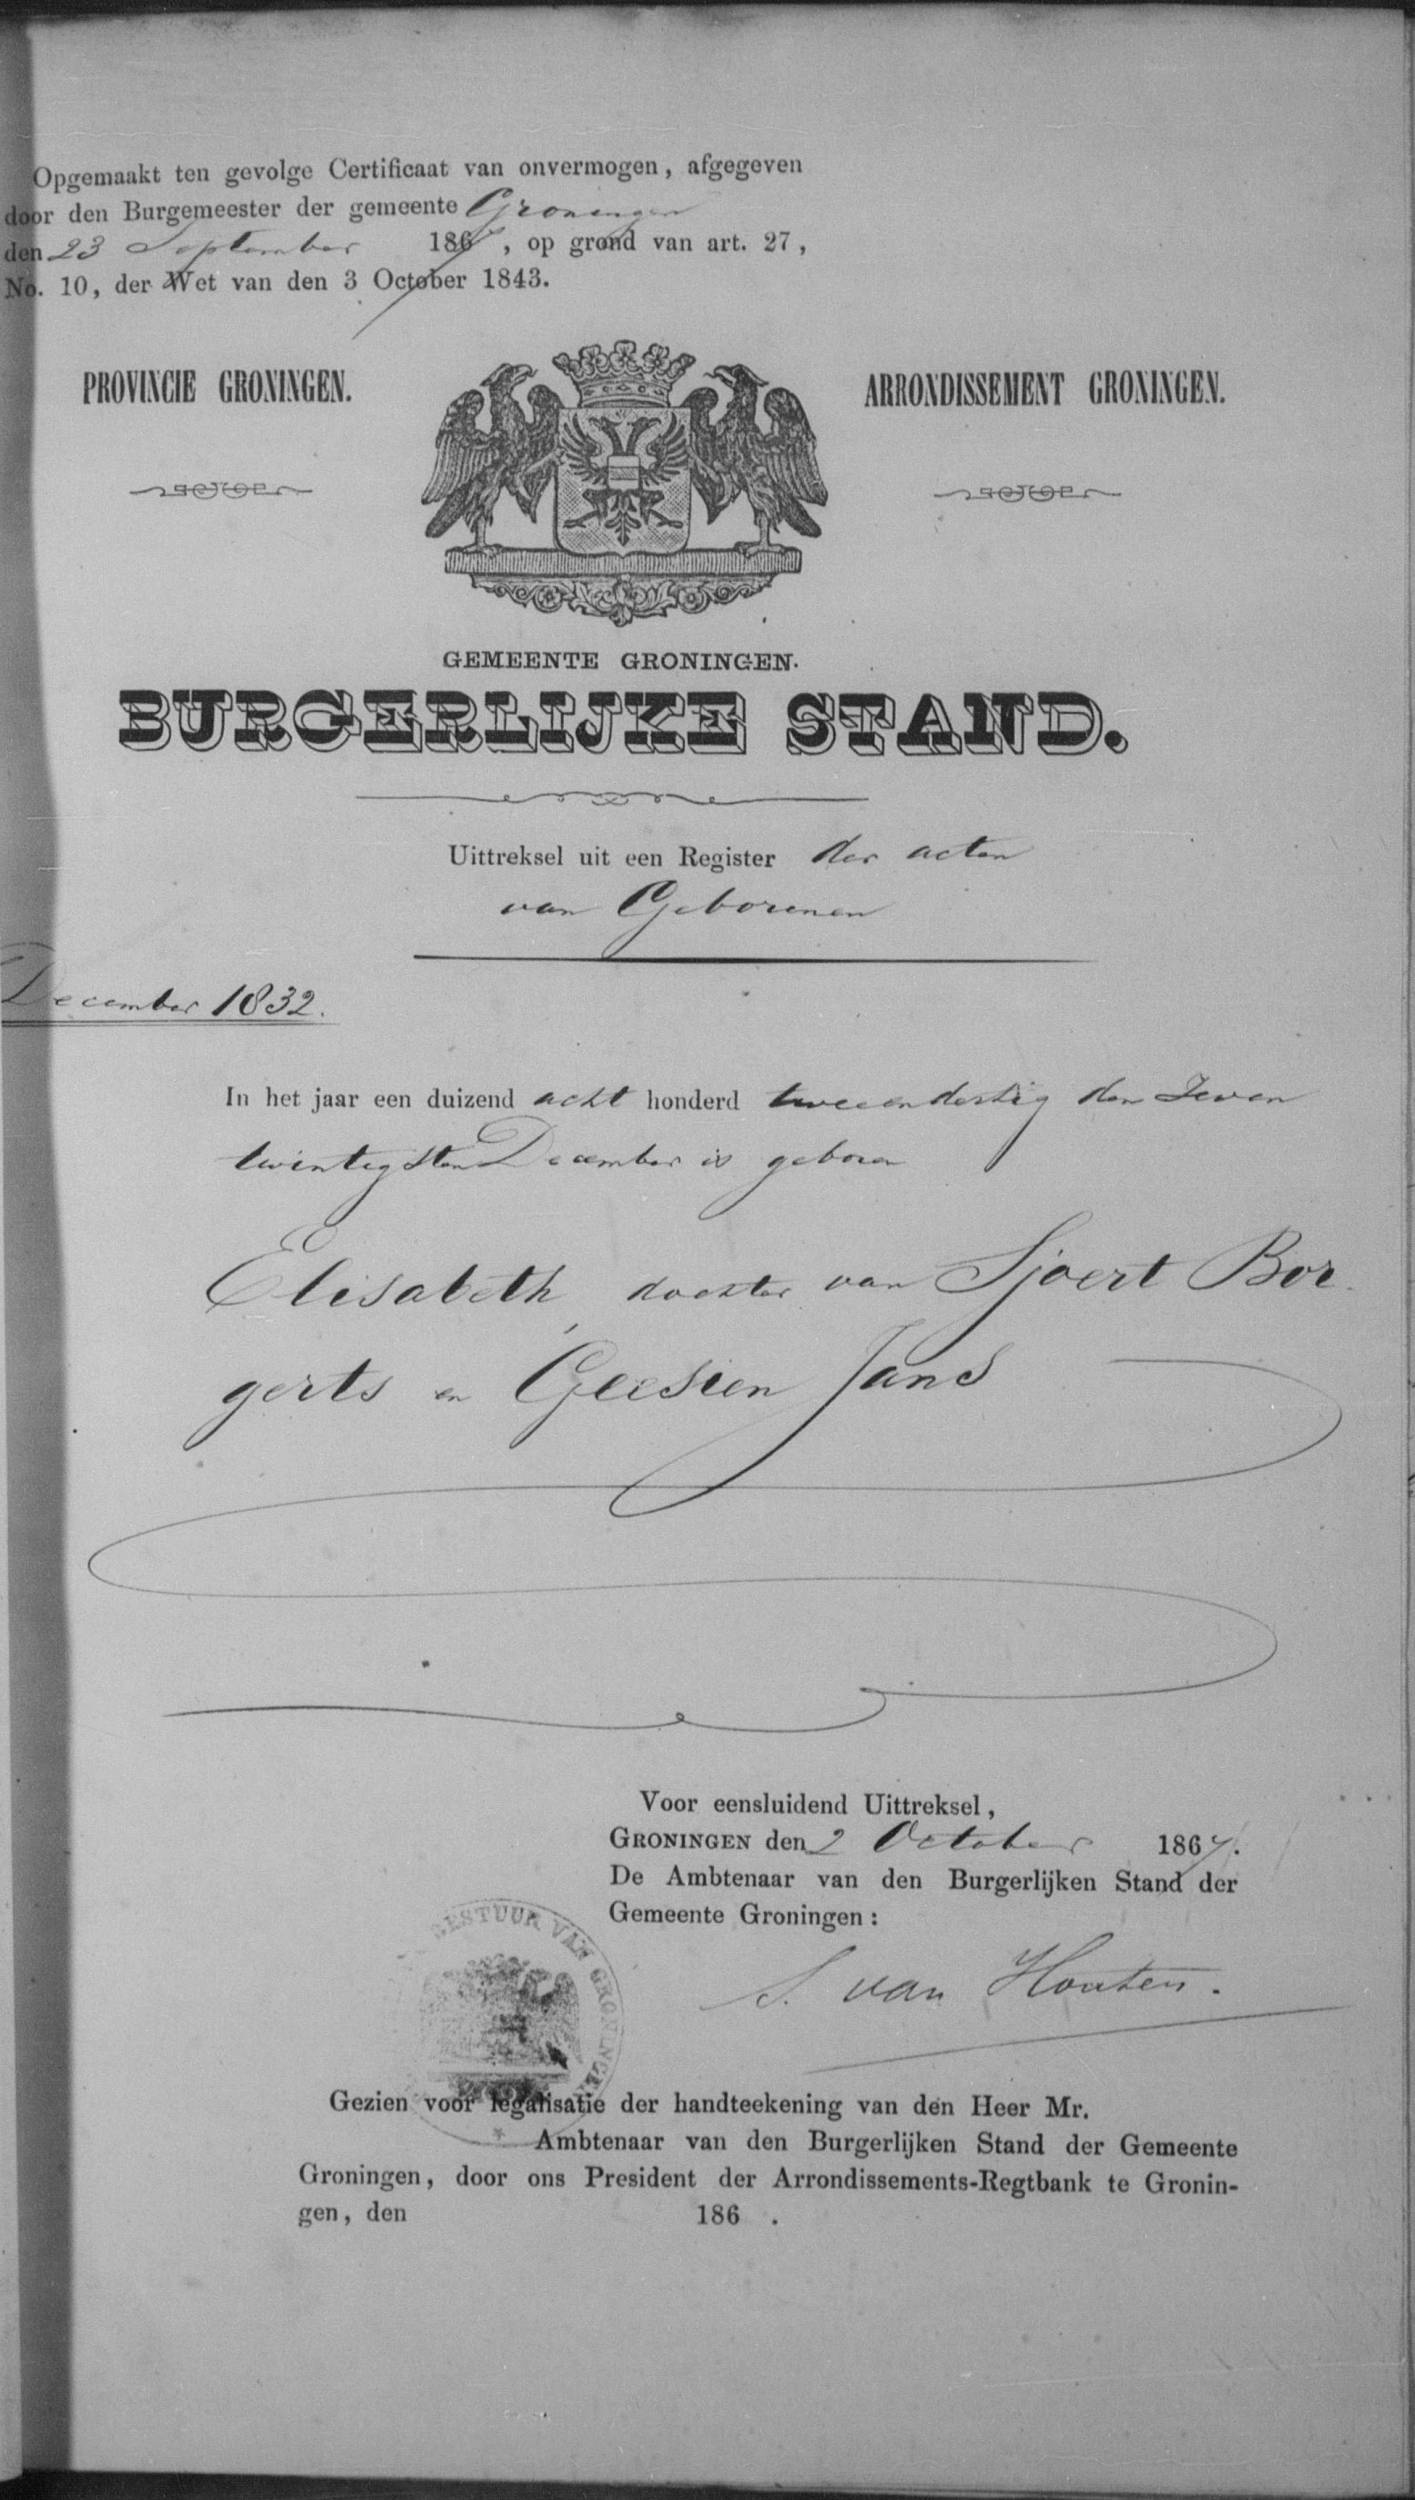 Opgemaakt ten gevolge Certificaat van onvermogen, afgegeven
door den Burgemeester der gemeente Groningen
den 23 September 1867, op grond van art. 27,
No. 10, der Wet van den 3 October 1843.
PROVINCIE GRONINGEN.
ARRONDISSEMENT GRONINGEN.
GEMEENTE GRONINGEN.
BURGERLIJKE STAND.
Uittreksel uit een Register der acten
van Geborenen
December 1832.
In het jaar een duizend acht honderd tweeendertig den Zeven
twintigsten December is geboren
Elisabeth, dochter van Sjoert Bor
gerts en Geesien Jans
Voor eensluidend Uittreksel,
GRONINGEN den 2 October 1867.
De Ambtenaar van den Burgerlijken Stand der
Gemeente Groningen:
S. van Houten.
BESTUUR VAN GRONINGEN
Gezien voor legalisatie der handteekening van den Heer Mr.
Ambtenaar van den Burgerlijken Stand der Gemeente
Groningen, door ons President der Arrondissements-Regtbank te Gronin-
gen, den 186 .